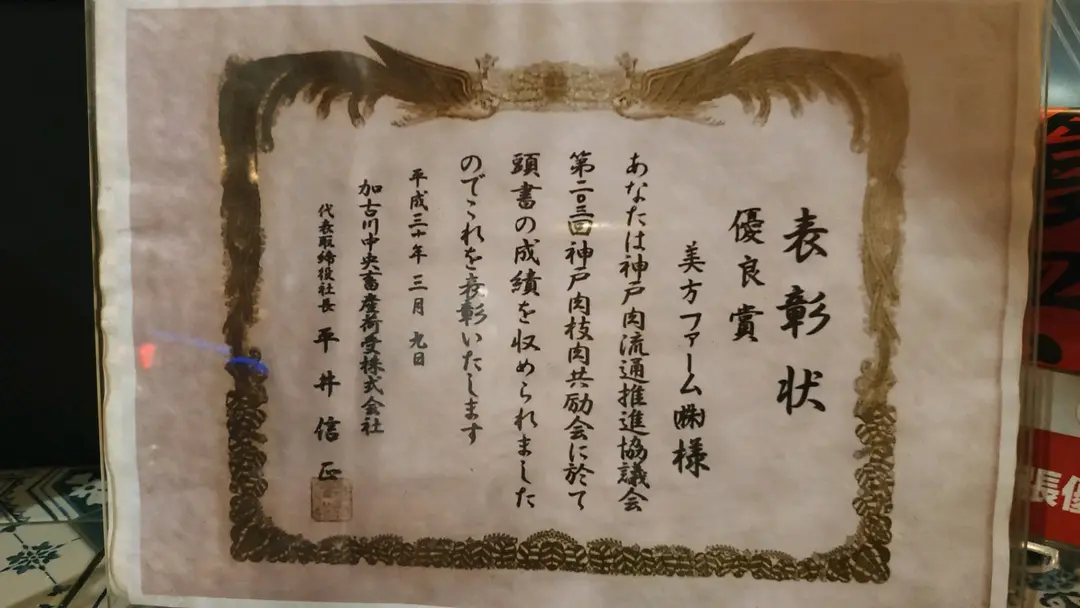 表彰状
優良賞
美方ファーム㈱様
あなたは神戸肉流通推進協議会
第二〇三回神戸肉枝肉共励会に於て
頭書の成績を収められました
のでこれを表彰いたします
平成三十年三月九日
加古川中央畜産荷受株式会社
代表取締役社長 平井信正